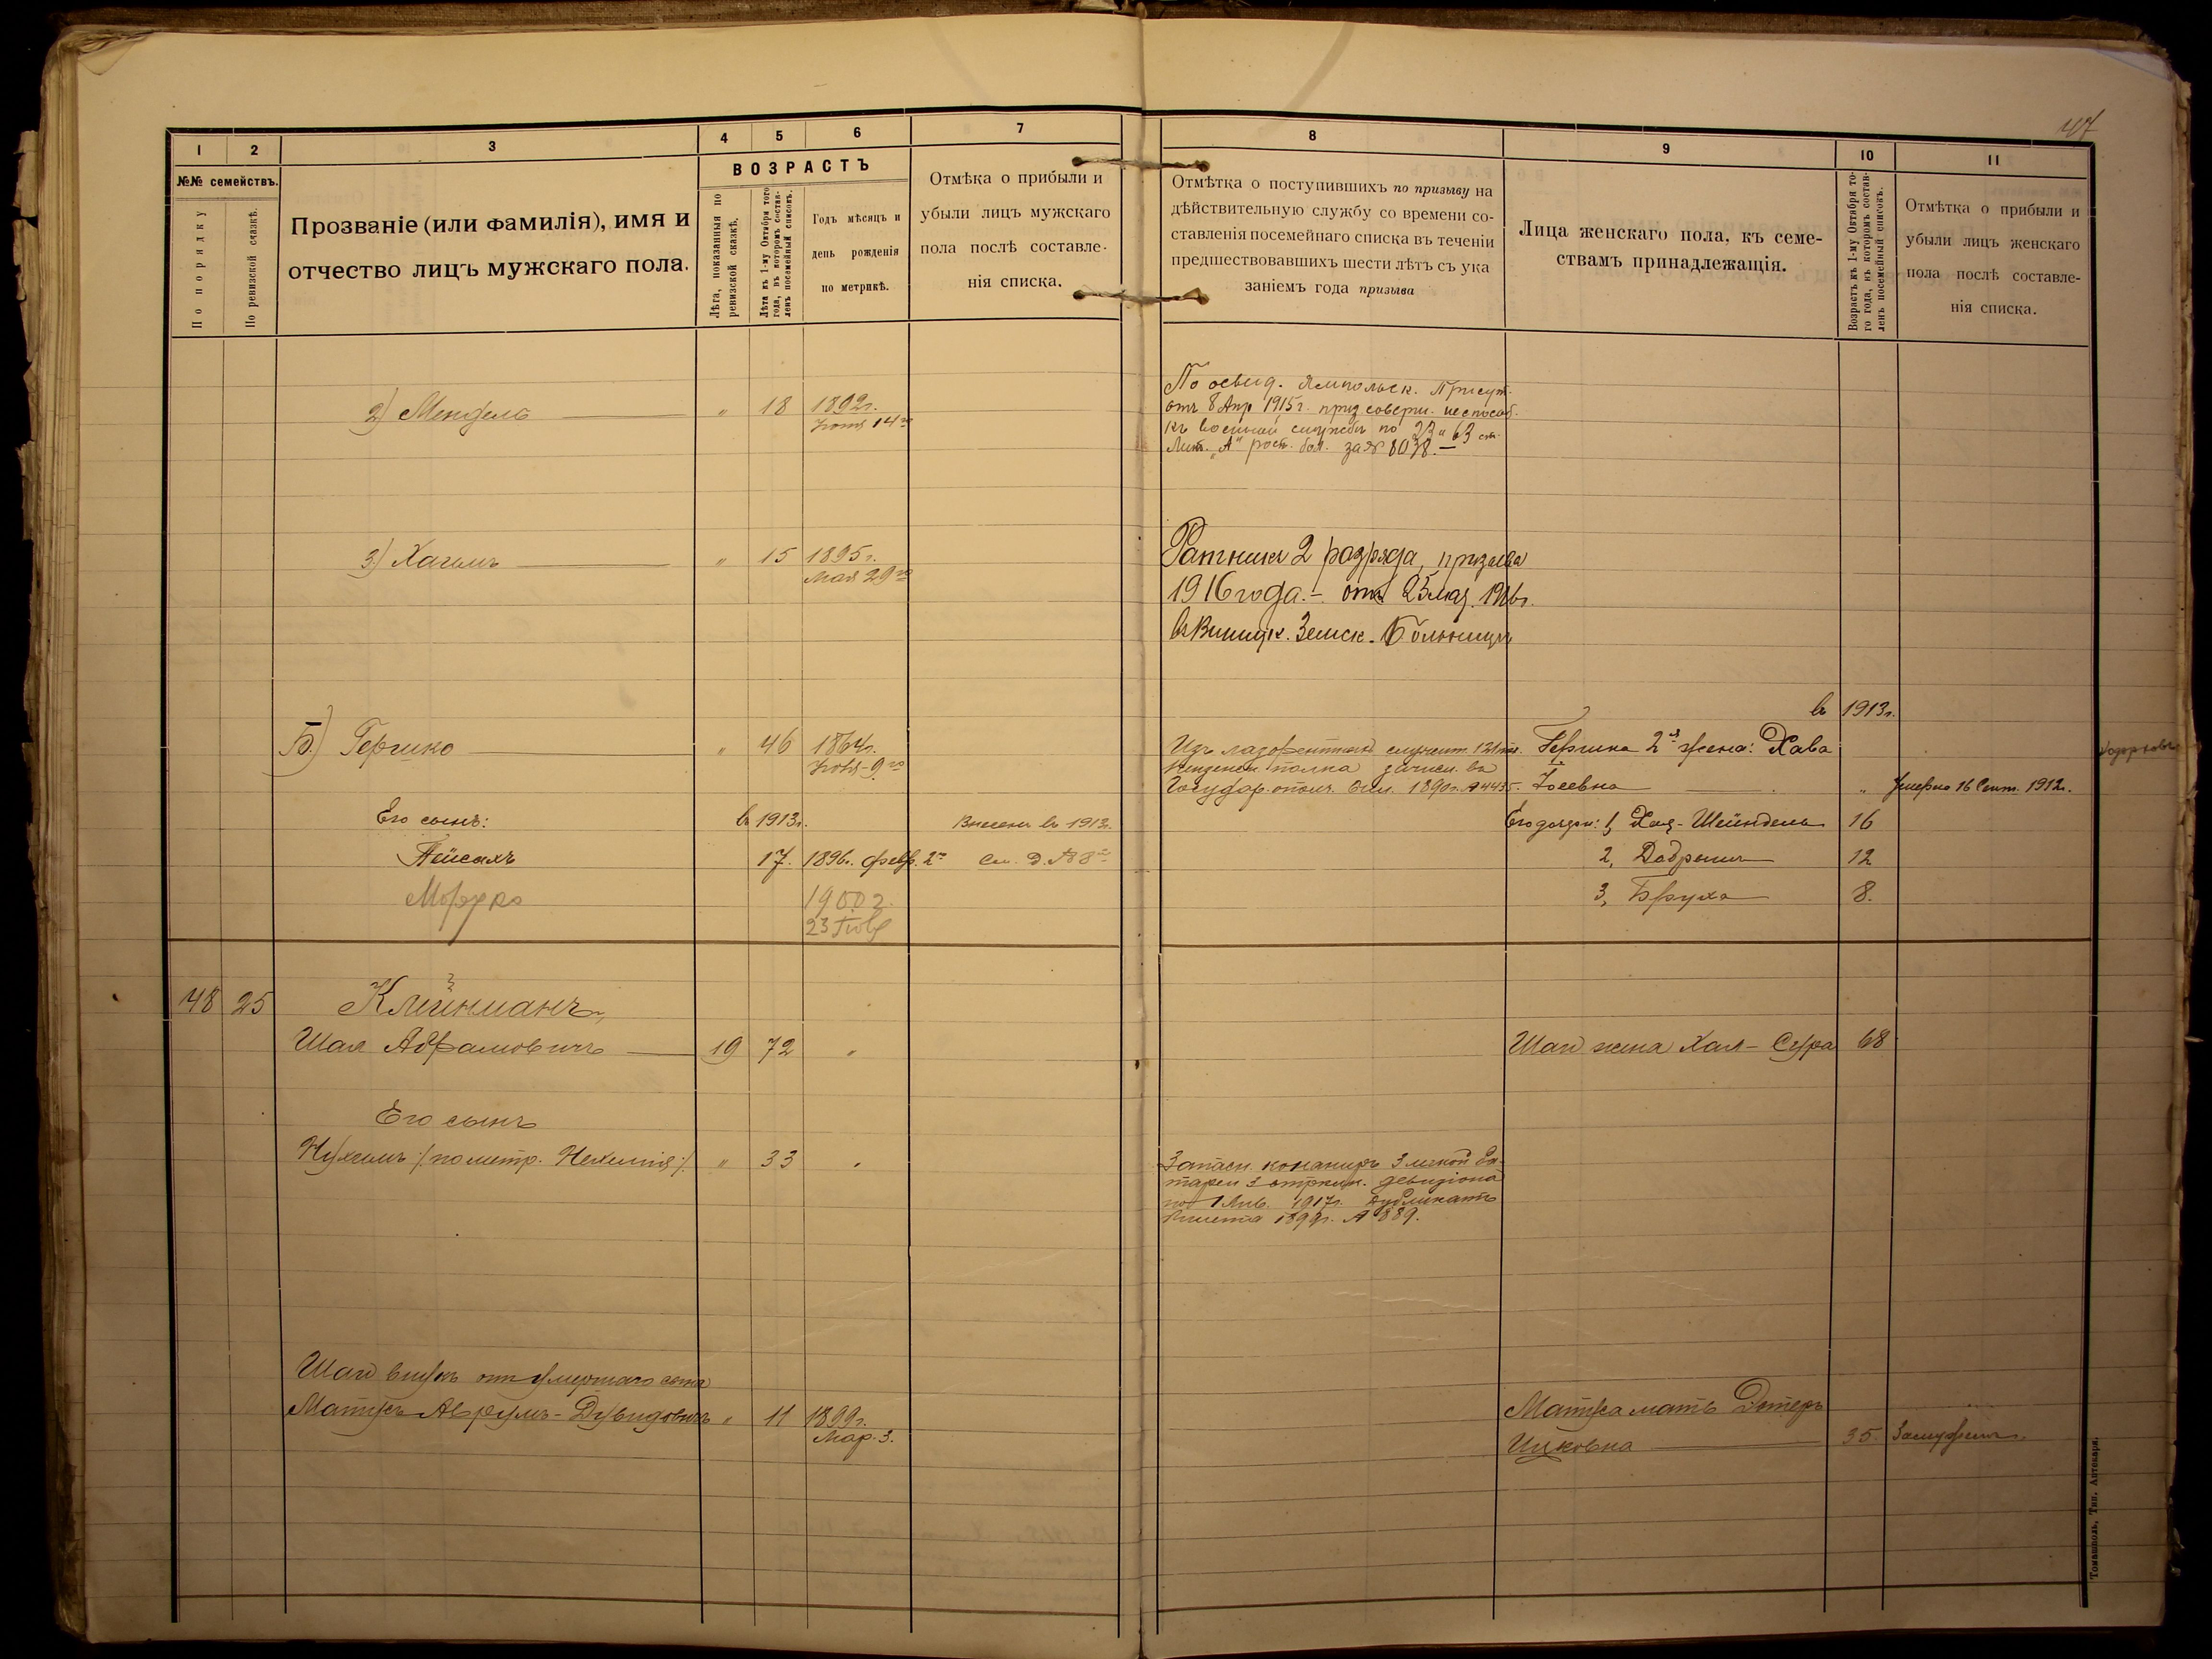 47
1 2 3 4 5 6 7
№№ семействъ.
По порядку
По ревизской сказкѣ.
Прозваніе (или фамилія), имя и
отчество лицъ мужскаго пола.
ВОЗРАСТЪ
Лѣта, показанныя по
ревизской сказкѣ.
Лѣта къ 1-му Октября того
года, въ которомъ состав-
ленъ посемейный списокъ.
Годъ мѣсяцъ и
день рожденія
по метрикѣ.
Отмѣка о прибыли и
убыли лицъ мужскаго
пола послѣ составле-
нія списка.
2) Мендель " 18 1892г.
14го
3) Хаимъ " 15 1895г.
Мая 29го
Б.) Гершко " 46 1864г.
9го
Его сынъ: въ 1913г. Внесенъ въ 1913г.
Пейсахъ 17. 1896г. февр. 2го См. Д. № 8
Мордко 1900г.
23
48 25 Клейнманъ,
Шая Абрамовичъ 19 72 "
Его сынъ
Нухимъ /: по метр. Нехемія :/ " 33 "
Шаи внукъ отъ умершаго сына
Матусъ Аврумъ-Дувидовичъ " 11 1899г.
Мар. 3.
8 9 10 11
Отмѣтка о поступившихъ по призыву на
дѣйствительную службу со времени со-
ставленія посемейнаго списка въ теченіи
предшествовавшихъ шести лѣтъ съ ука
заніемъ года призыва
Лица женскаго пола, къ семе-
ствамъ принадлежащія.
Возрастъ къ 1-му Октября то-
го года, въ которомъ состав-
ленъ посемейный списокъ.
Отмѣтка о прибыли и
убыли лицъ женскаго
пола послѣ составле-
нія списка.
По освид. Ямпольск. Присут.
отъ 8 Апр 1915г. призн. соверш. неспособ.
къ военной службѣ по 23 и 63 ст.
Лит. "А" росп. бол. за № 8038.
Ратникъ 2 разряда, призыва
1916 года. — отъ 25 мая 1916г.
въ Винниц. Земск. Больницѣ
въ 1913г.
Изъ лазаретныхъ служит.
полка зачисл. въ
Государ. ополч. 1890г. № 4435.
Гершка 2я жена: Хава
Іосевна " Умерла 16 Сент. 1912г.
Его дочери: 1, Хая-Шейндель 16
2, Добрышъ 12
3, Бруха 8.
Шаи жена Хая-Сура 68
Запасн. канониръ 3 легкой Ба-
тареи 3 стрѣлк. дивизіона
по 1 Янв. 1917г. дубликатъ
билета 1899г. № 889.
Матуса мать Эстеръ
Ицковна 35 Замужемъ
Томашполь, Тип. Аптекаря.